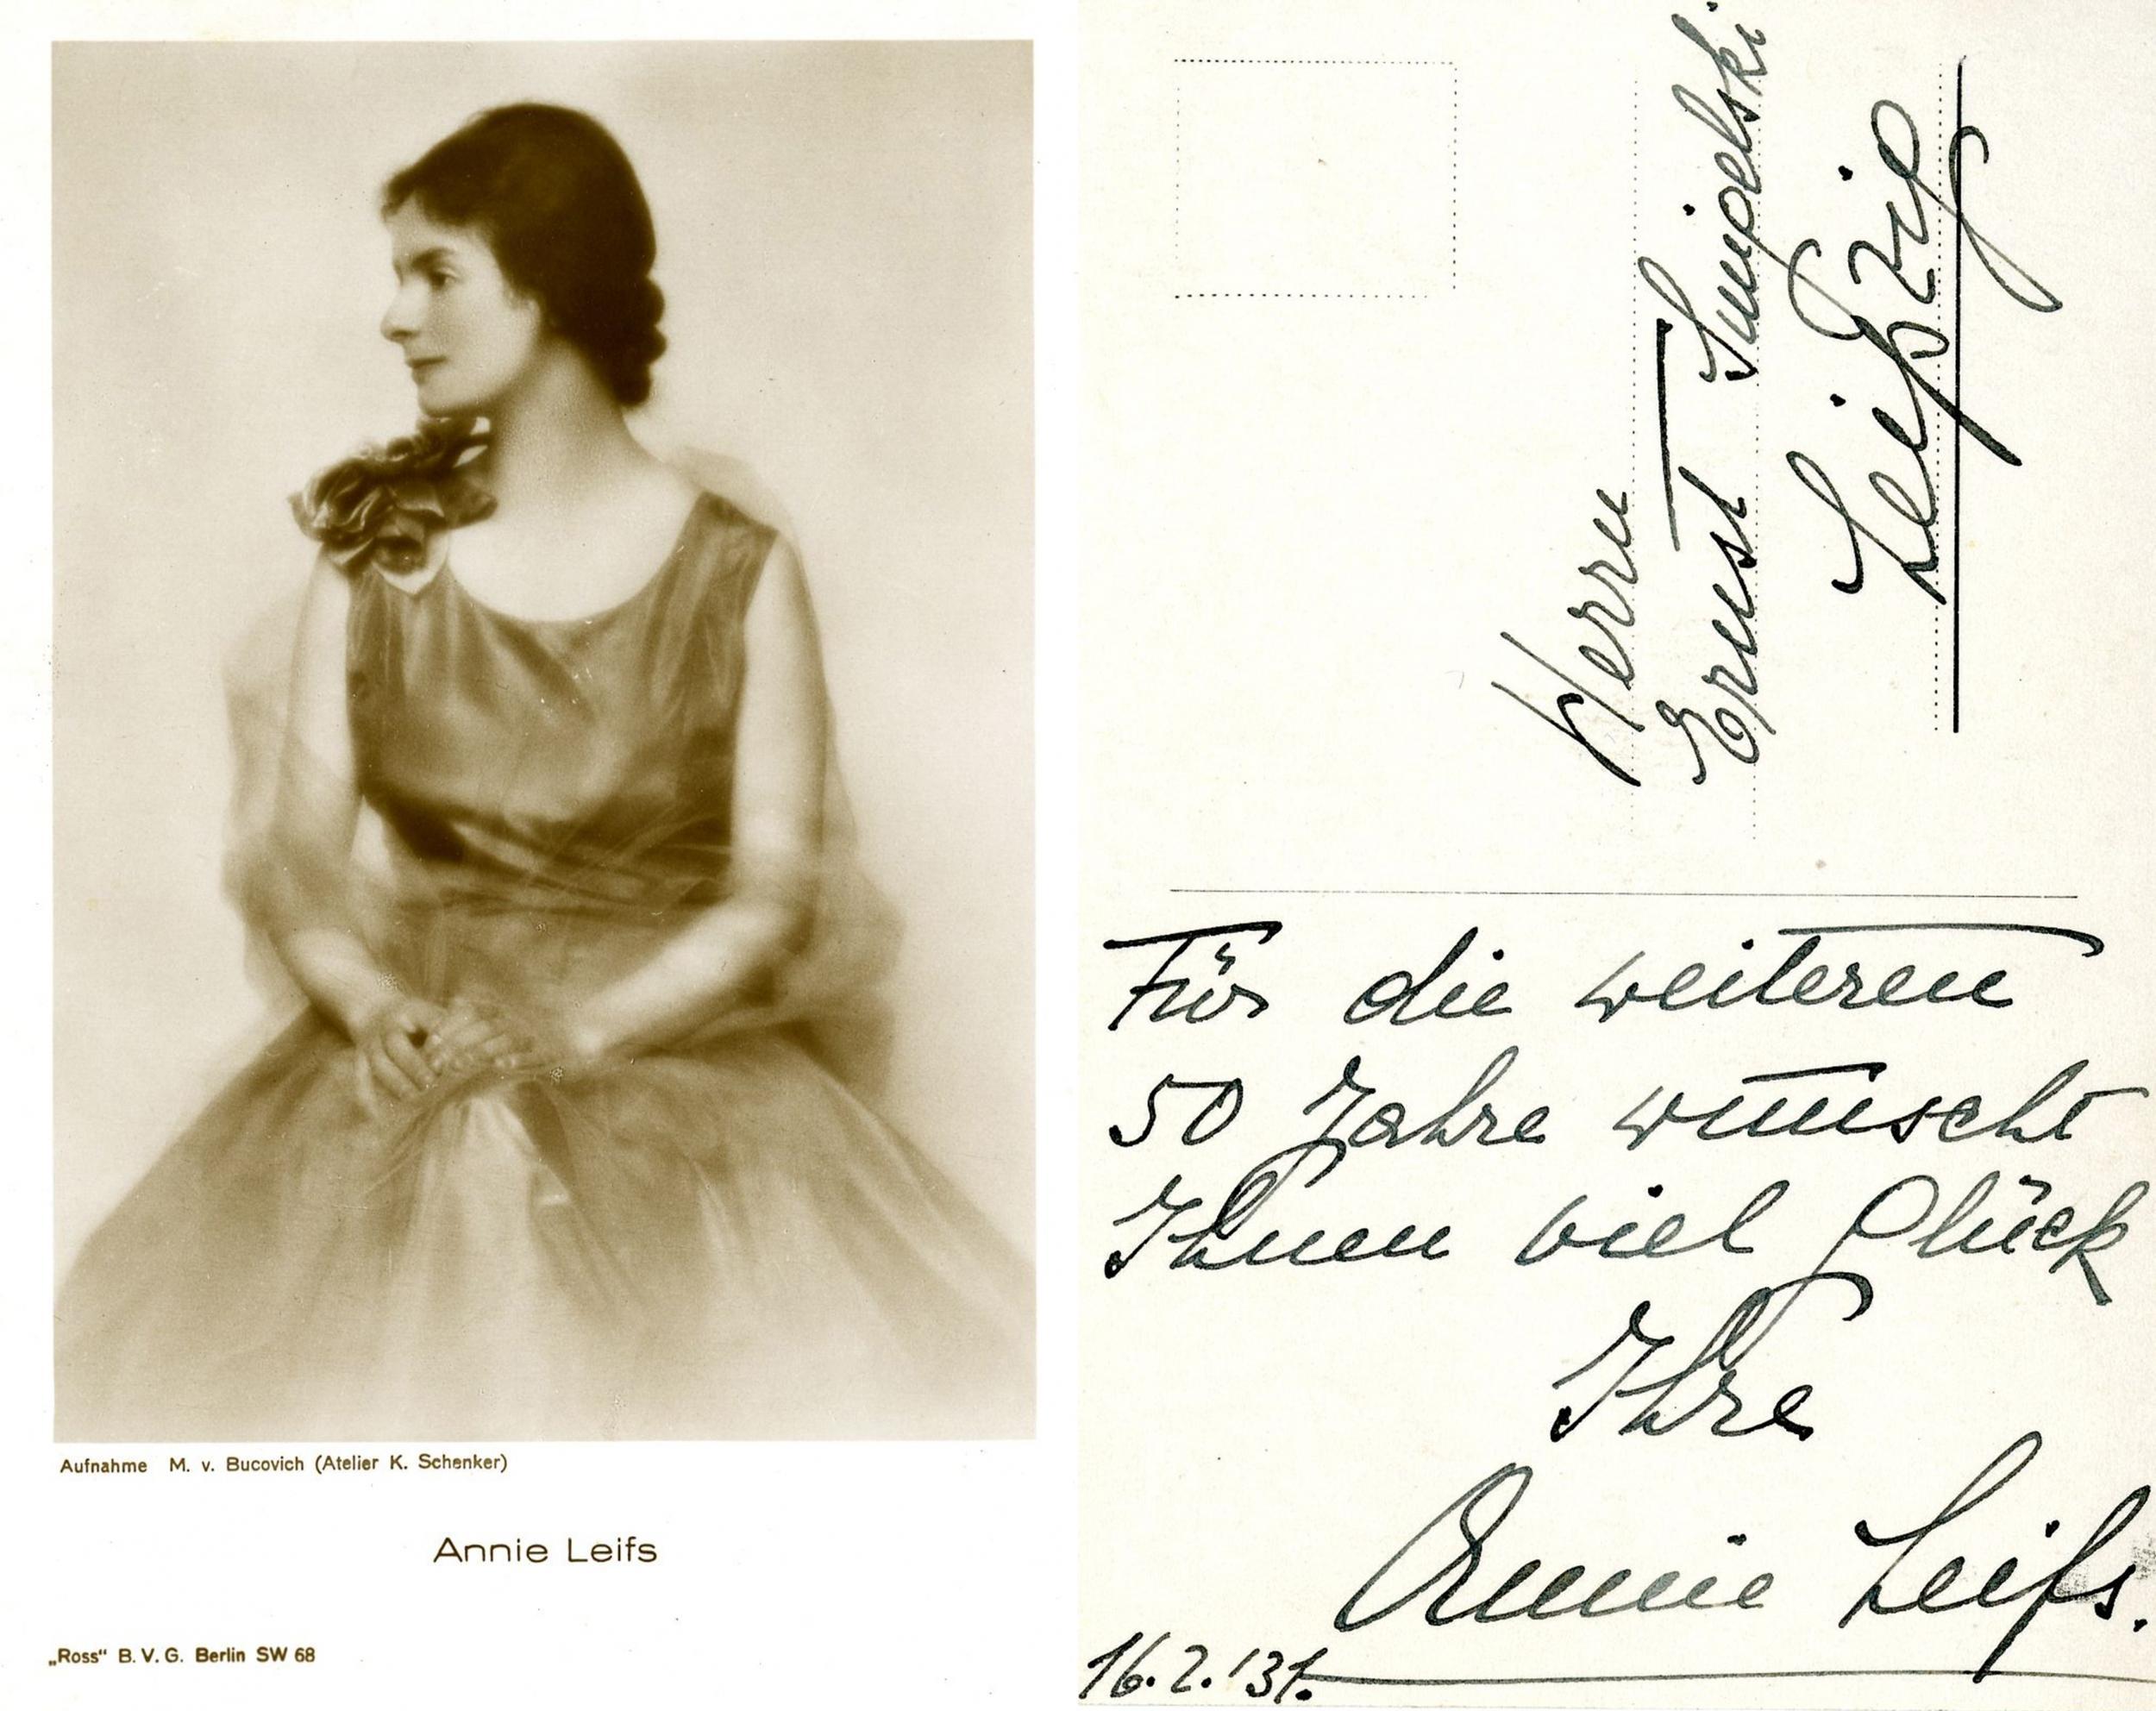 Aufnahme M. v. Bucovich (Atelier K. Schenker)
Annie Leifs
„Ross“ B. V. G. Berlin SW 68
Herrn
Ernst Smigelski
Leipzig
Für die weiteren
50 Jahre wünscht
Ihnen viel Glück
Ihre
Annie Leifs.
16.2.'31.